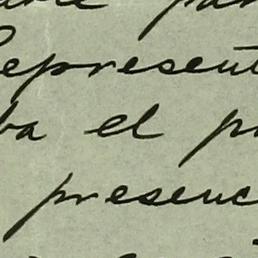 par
Represent
ba el p
presenc